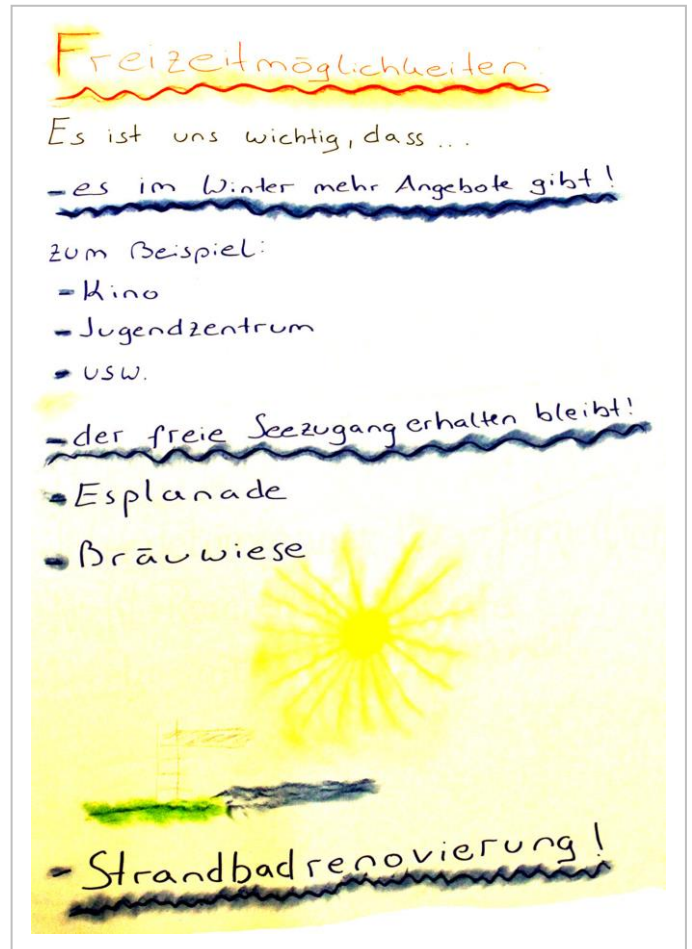 Freizeitmöglichkeiten
Es ist uns wichtig, dass...
- es im Winter mehr Angebote gibt!
zum Beispiel:
- Kino
- Jugendzentrum
- usw.
- der freie Seezugang erhalten bleibt!
- Esplanade
- Bräuwiese
- Strandbadrenovierung!